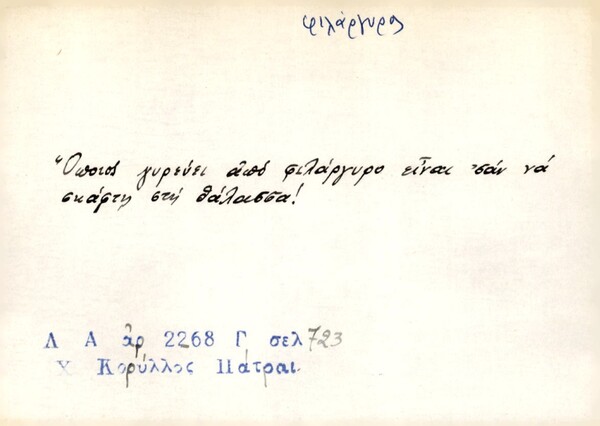 φιλάργυρος
Ὅποιος γυρεύει ἀπό φιλάργυρο εἶναι σάν νά
σκάφτη στή θάλασσα!
Λ Α ἀρ 2268 Γ σελ 723
Χ Κορύλλος Πάτραι